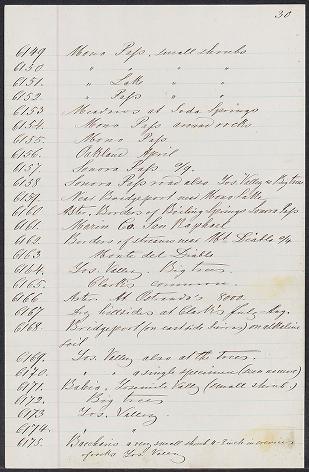 30
6149 Mono Pass, small shrubs
6150 " " " "
6151. " Lake " "
6152. " Pass " "
6153 Meadows at Soda Springs
6154. Mono Pass around rocks
6155. Mono Pass
6156. Oakland April
6157. Sonora Pass
6158 Sonora Pass road also Yos. Valley & Big trees
6159. Near Bridgeport near Mono Lake
6160 Aster. Borders of Boiling Springs Sonora Pass
6161. Marin Co. San Raphael
6162. Borders of streams near Mt. Diablo
6163 Monte del Diablo
6164. Yos. Valley. Big trees.
6165. Clark's common.
6166 At 8000
6167 Dry hillsides at Clark's July, Aug.
6168. Bridgeport (on east side Sierras) on alkaline
soil
6169. Yos. Valley also at the trees.
6170. " " a single specimen
6171. Yosemite Valley (small shrub)
6172. Big trees
6173 Yos. Valley.
6174. " "
6175. Baccharis a very small shrub in crevices
of rocks Yos. Valley